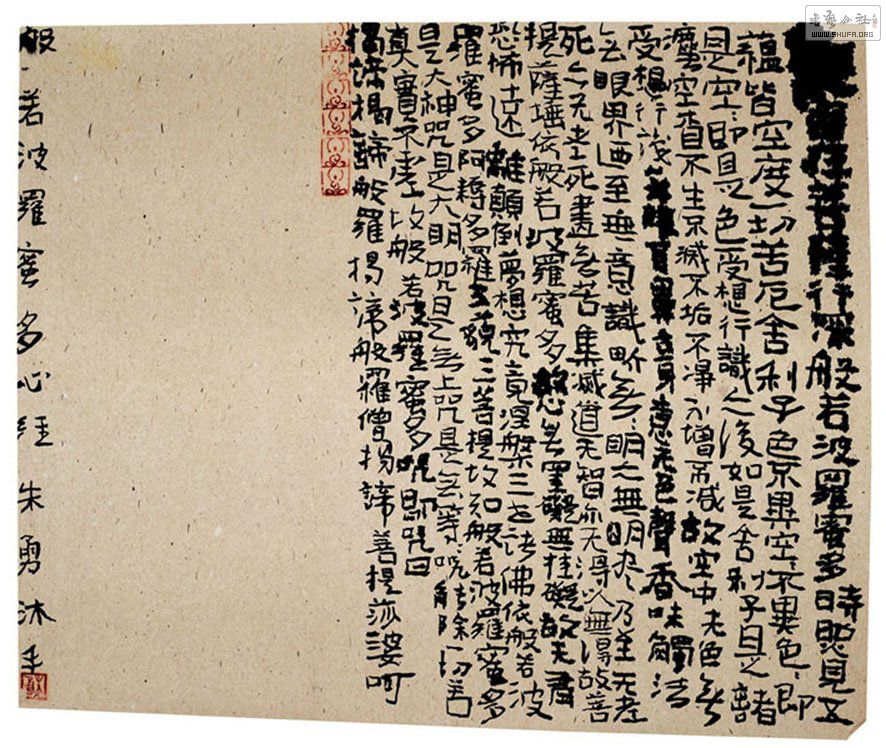 在菩薩行深般若波羅蜜多時照見五
蘊皆空度一切苦厄舍利子色不異空不異色即
是空即是色受想行識之後如是舍利子是諸
空不生不滅不垢不淨不增不減故空中无色無
受想行識耳鼻意身意无色聲香味觸法
無眼界乃至無意識界無明無明尽乃至无老
死无老死盡無苦集滅道无智亦无得以無得故善
提薩埵依般若波羅蜜多無罣礙無挂礙故无有
恐怖遠離顛倒夢想究竟涅槃三世諸佛依般若波
羅蜜多阿耨多羅三藐三菩提故知般若波羅蜜多
是大神咒是大明咒是無上咒是無等咒除一切苦
真實不虛故般若波羅蜜多咒即咒曰
揭諦揭諦般羅揭諦般羅僧揭諦菩提莎婆呵
般若波羅蜜多心經 朱勇沐手
書藝公社
WWW.SHUFA.ORG